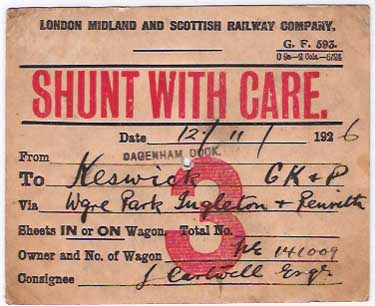 LONDON MIDLAND AND SCOTTISH RAILWAY COMPANY.
G. F. 593.
SHUNT WITH CARE.
Date 12/11/ 1926
From DAGENHAM DOCK.
To Keswick CK & P
Via Wyre Park Ingleton & Penrith
3
Sheets IN or ON Wagon. Total No.
Owner and No. of Wagon NE 141009
Consignee J Cartwell Esqr